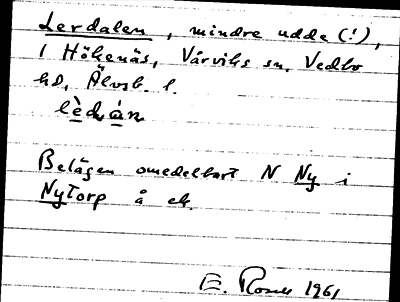 Lerdalen, mindre udde (!),
i Hökenäs, Vårviks sn, Vedbo
hd, Älvsb. l.
lè̠dá̠n
Belägen omedelbart N Ny i
NyTorp å ek.
E. Rosell 1961